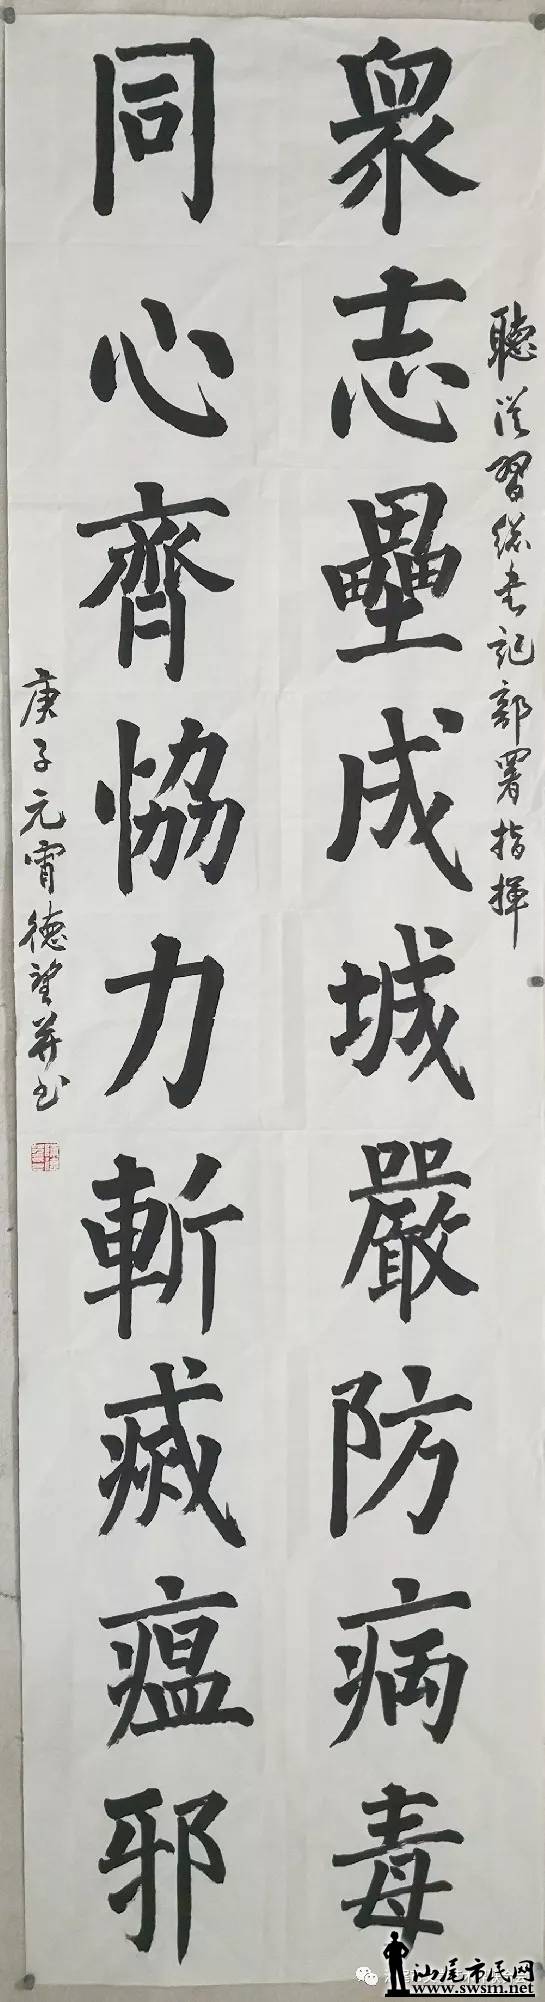 聽從習總书記部署指揮
衆志壘成城嚴防病毒
同心齊恊力斬滅瘟邪
庚子元宵德望并书
汕尾市民网
www.swsm.net